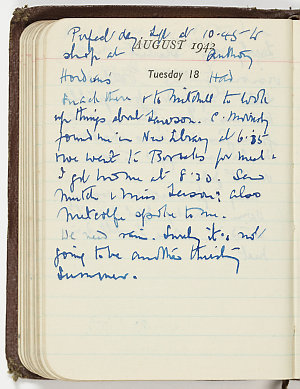 Perfect day. Left at 10-45 to
shop at Anthony
AUGUST 1942
Horderns'
Tuesday 18 Had
snack there & to Mitchell to look
up things about Lawson. C.
found me in New Library at 6.35
& we went to for meal &
I got home at 8.30. Saw
Mutch & Miss Leeson; also
Metcalfe spoke to me.
We need rain. Surely it is not
going to be another thirsty
Summer.